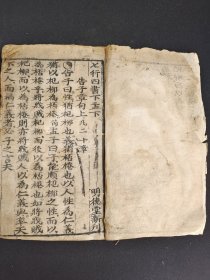 七行四書下孟下
告子章句上凡二十章
明德堂新刊
告子曰性猶杞柳也義猶桮棬也以人性為仁義
猶以杞柳為桮棬孟子曰子能順杞柳之性而以
為桮棬乎將戕賊杞柳而後以為桮棬也如將戕賊
杞柳而以為桮棬則亦將戕賊人以為仁義與率天
下之人而禍仁義者必子之言夫